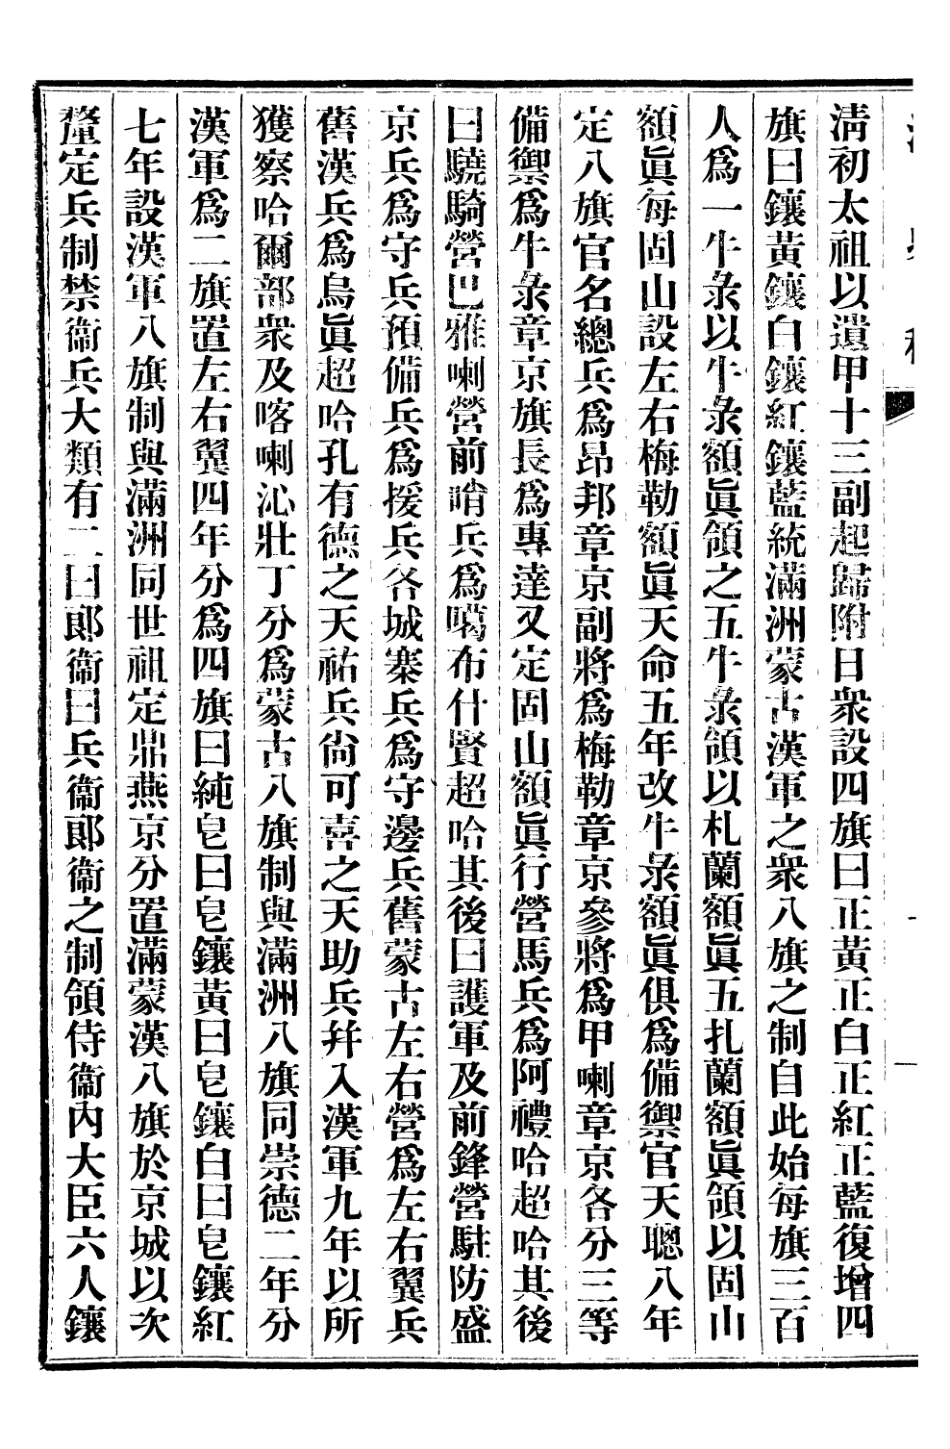 清初太祖以遺甲十三副起歸附日衆設四旗曰正黃正白正紅正藍復增四
旗曰鑲黃鑲白鑲紅鑲藍統滿洲蒙古漢軍之衆八旗之制自此始每旗三百
人爲一牛彔以牛彔額眞領之五牛彔領以札蘭額眞五扎蘭額眞領以固山
額眞每固山設左右梅勒額眞天命五年改牛彔額眞俱爲備禦官天聰八年
定八旗官名總兵爲昂邦章京副將爲梅勒章京參將爲甲喇章京各分三等
備禦爲牛彔章京旗長爲專達又定固山額眞行營馬兵爲阿禮哈超哈其後
曰驍騎營巴雅喇營前哨兵爲噶布什賢超哈其後曰護軍及前鋒營駐防盛
京兵爲守兵預備兵爲援兵各城寨兵爲守邊兵舊蒙古左右營爲左右翼兵
舊漢兵爲烏眞超哈孔有德之天祐兵尙可喜之天助兵幷入漢軍九年以所
獲察哈爾部衆及喀喇沁壯丁分爲蒙古八旗制與滿洲八旗同崇德二年分
漢軍爲二旗置左右翼四年分爲四旗曰純皂曰皂鑲黃曰皂鑲白曰皂鑲紅
七年設漢軍八旗制與滿洲同世祖定鼎燕京分置滿蒙漢八旗於京城以次
釐定兵制禁衞兵大類有二曰郞衞曰兵衞郞衞之制領侍衞內大臣六人鑲